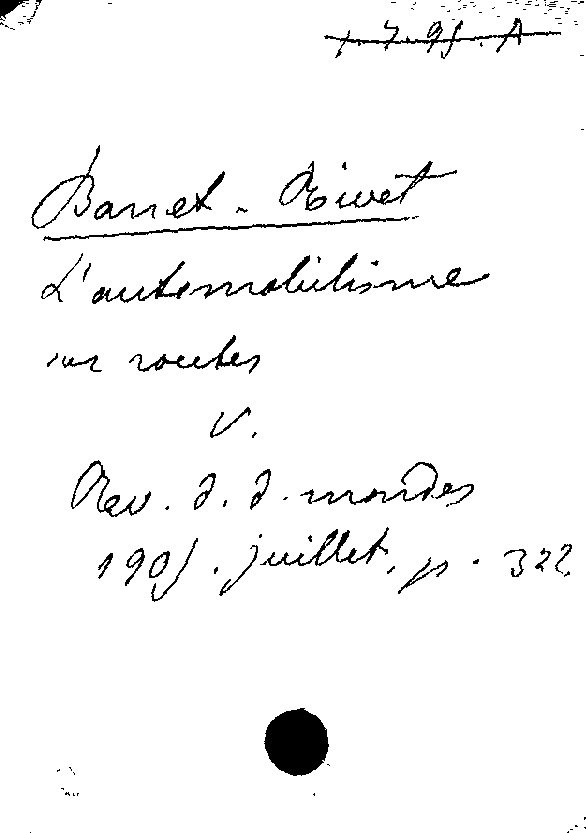 1.7.95.A
Barret-Rivet
L'automobilisme
sur routes
V.
Rev. d. d. mondes
1905. juillet, p. 322